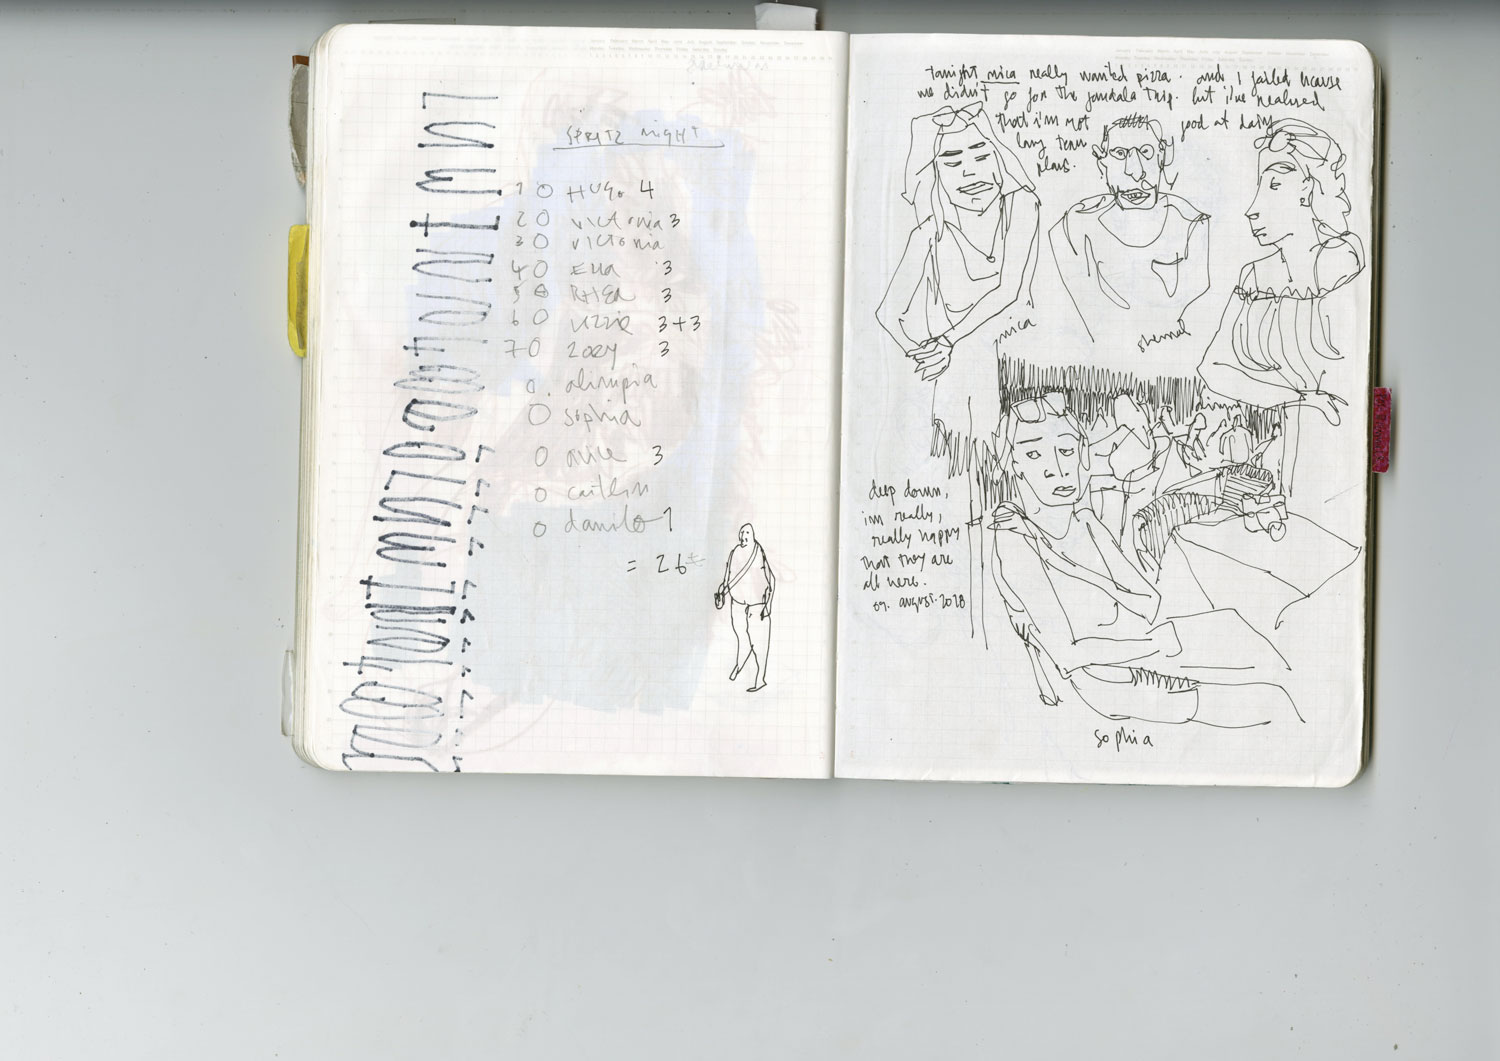 SPRITZ NIGHT
1 O HUGO 4
2 O victoria 3
3 O victoria
4 O Ella 3
5 O RHEA 3
6 O Lizzie 3+3
7 O zoey 3
O olimpia
O sophia
O 3
O caitlin
O danilo 1
= 26
tonight mica really wanted pizza. and I failed because
we didn't go for the trip. but i've realised
that i'm not good at doing
long term
plans.
mica
deep down,
im really,
really happy
that they are
all here.
09. august. 2018
sophia